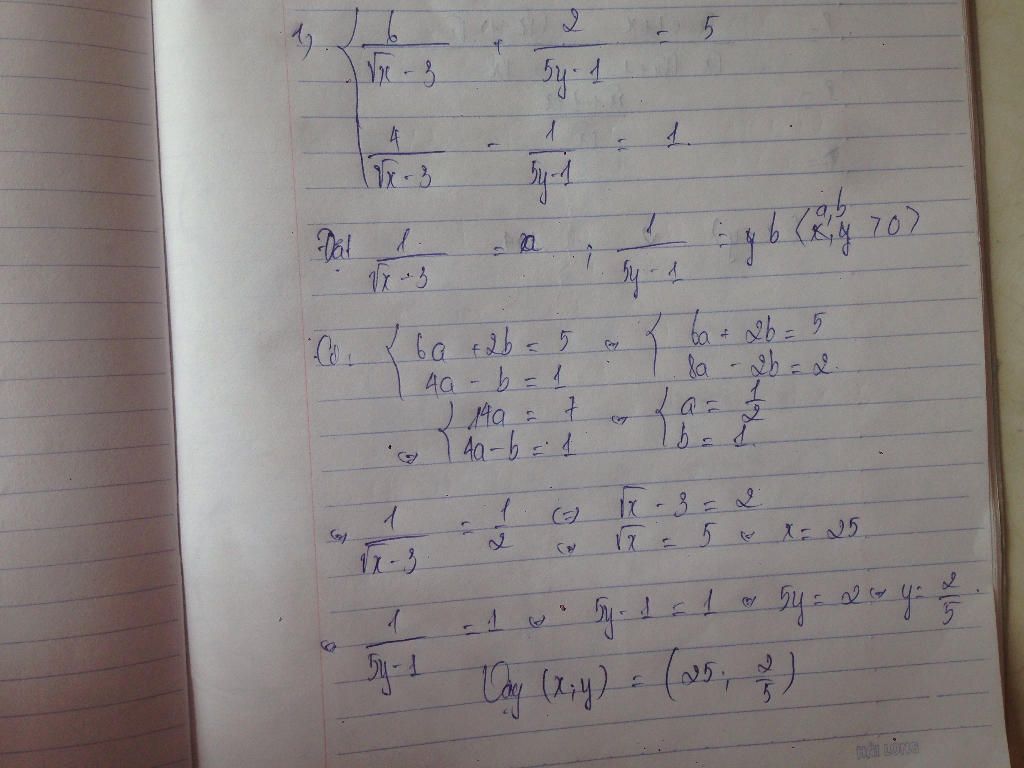 1, { 6/(√x - 3) + 2/(5y - 1) = 5
4/(√x - 3) - 1/(5y - 1) = 1.
Đặt 1/(√x - 3) = a ; 1/(5y - 1) = b (a, b > 0)
Có: { 6a + 2b = 5 ⇔ { 6a + 2b = 5
4a - b = 1 8a - 2b = 2.
⇔ { 14a = 7 ⇔ { a = 1/2
4a - b = 1 b = 1.
⇔ 1/(√x - 3) = 1/2 ⇔ √x - 3 = 2
⇔ √x = 5 ⇔ x = 25.
⇔ 1/(5y - 1) = 1 ⇔ 5y - 1 = 1 ⇔ 5y = 2 ⇔ y = 2/5.
Vậy (x; y) = (25; 2/5)
HẢI LONG